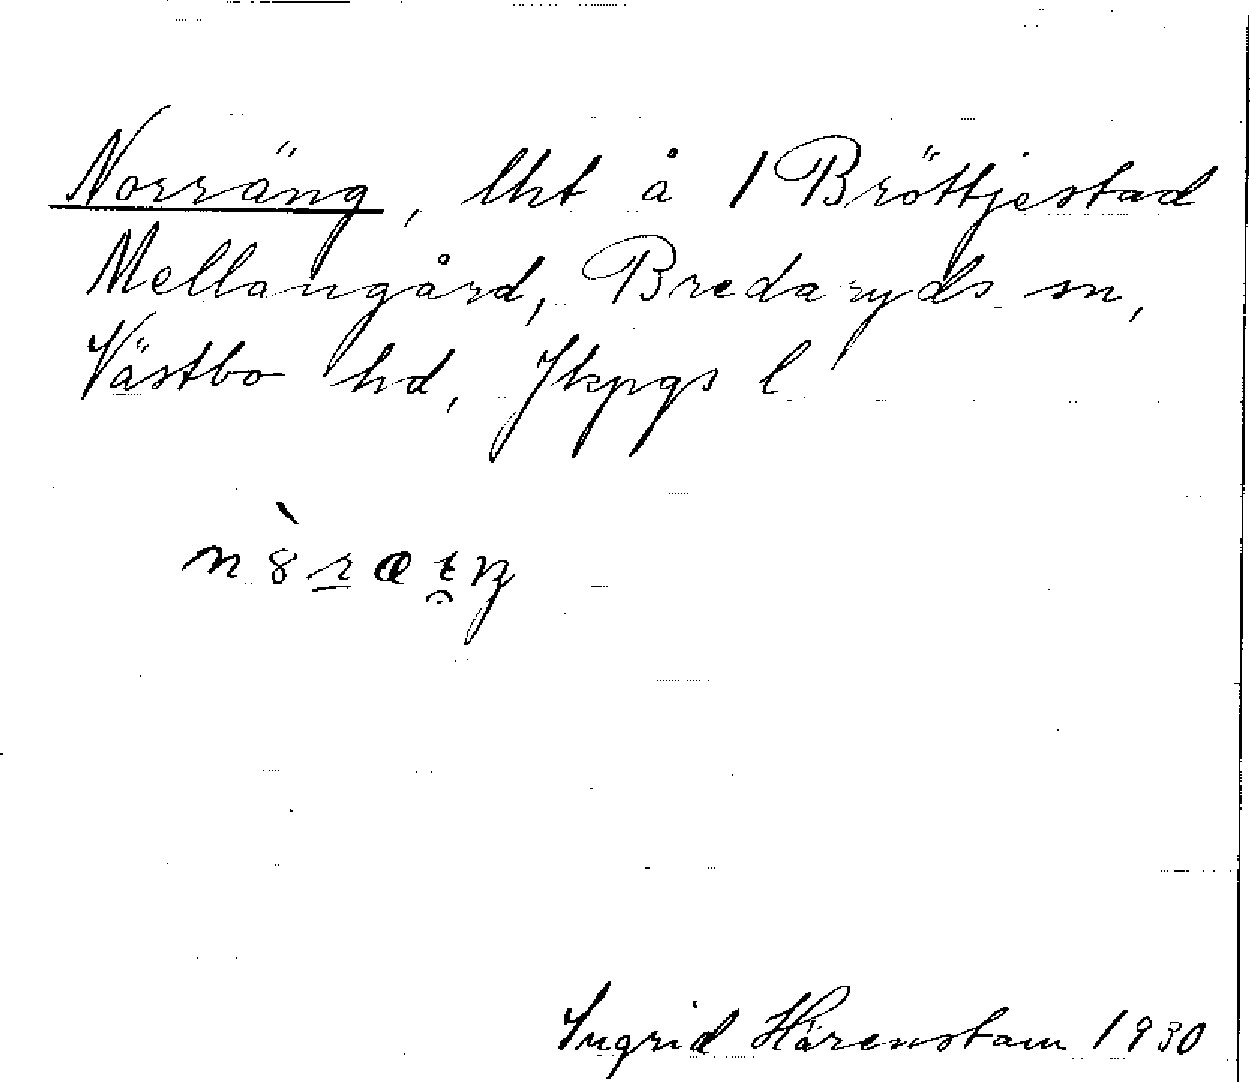 Norräng, lht å 1 Bröttjestad
Mellangård, Bredaryds sn,
Västbo hd, Jkpgs l
Ingrid Härenstam 1930